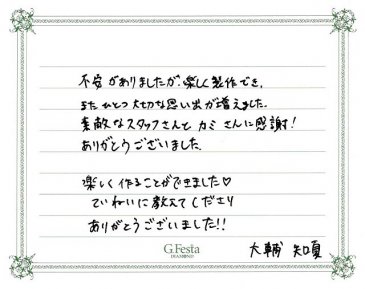 不安がありましたが、楽しく製作でき、
また ひとつ 大切な思い出が増えました。
素敵なスタッフさんと カミ さんに感謝!
ありがとうございました。
楽しく作ることができました♡
ていねいに教えてくださり
ありがとうございました!!
G.Festa
DIAMOND
大輔